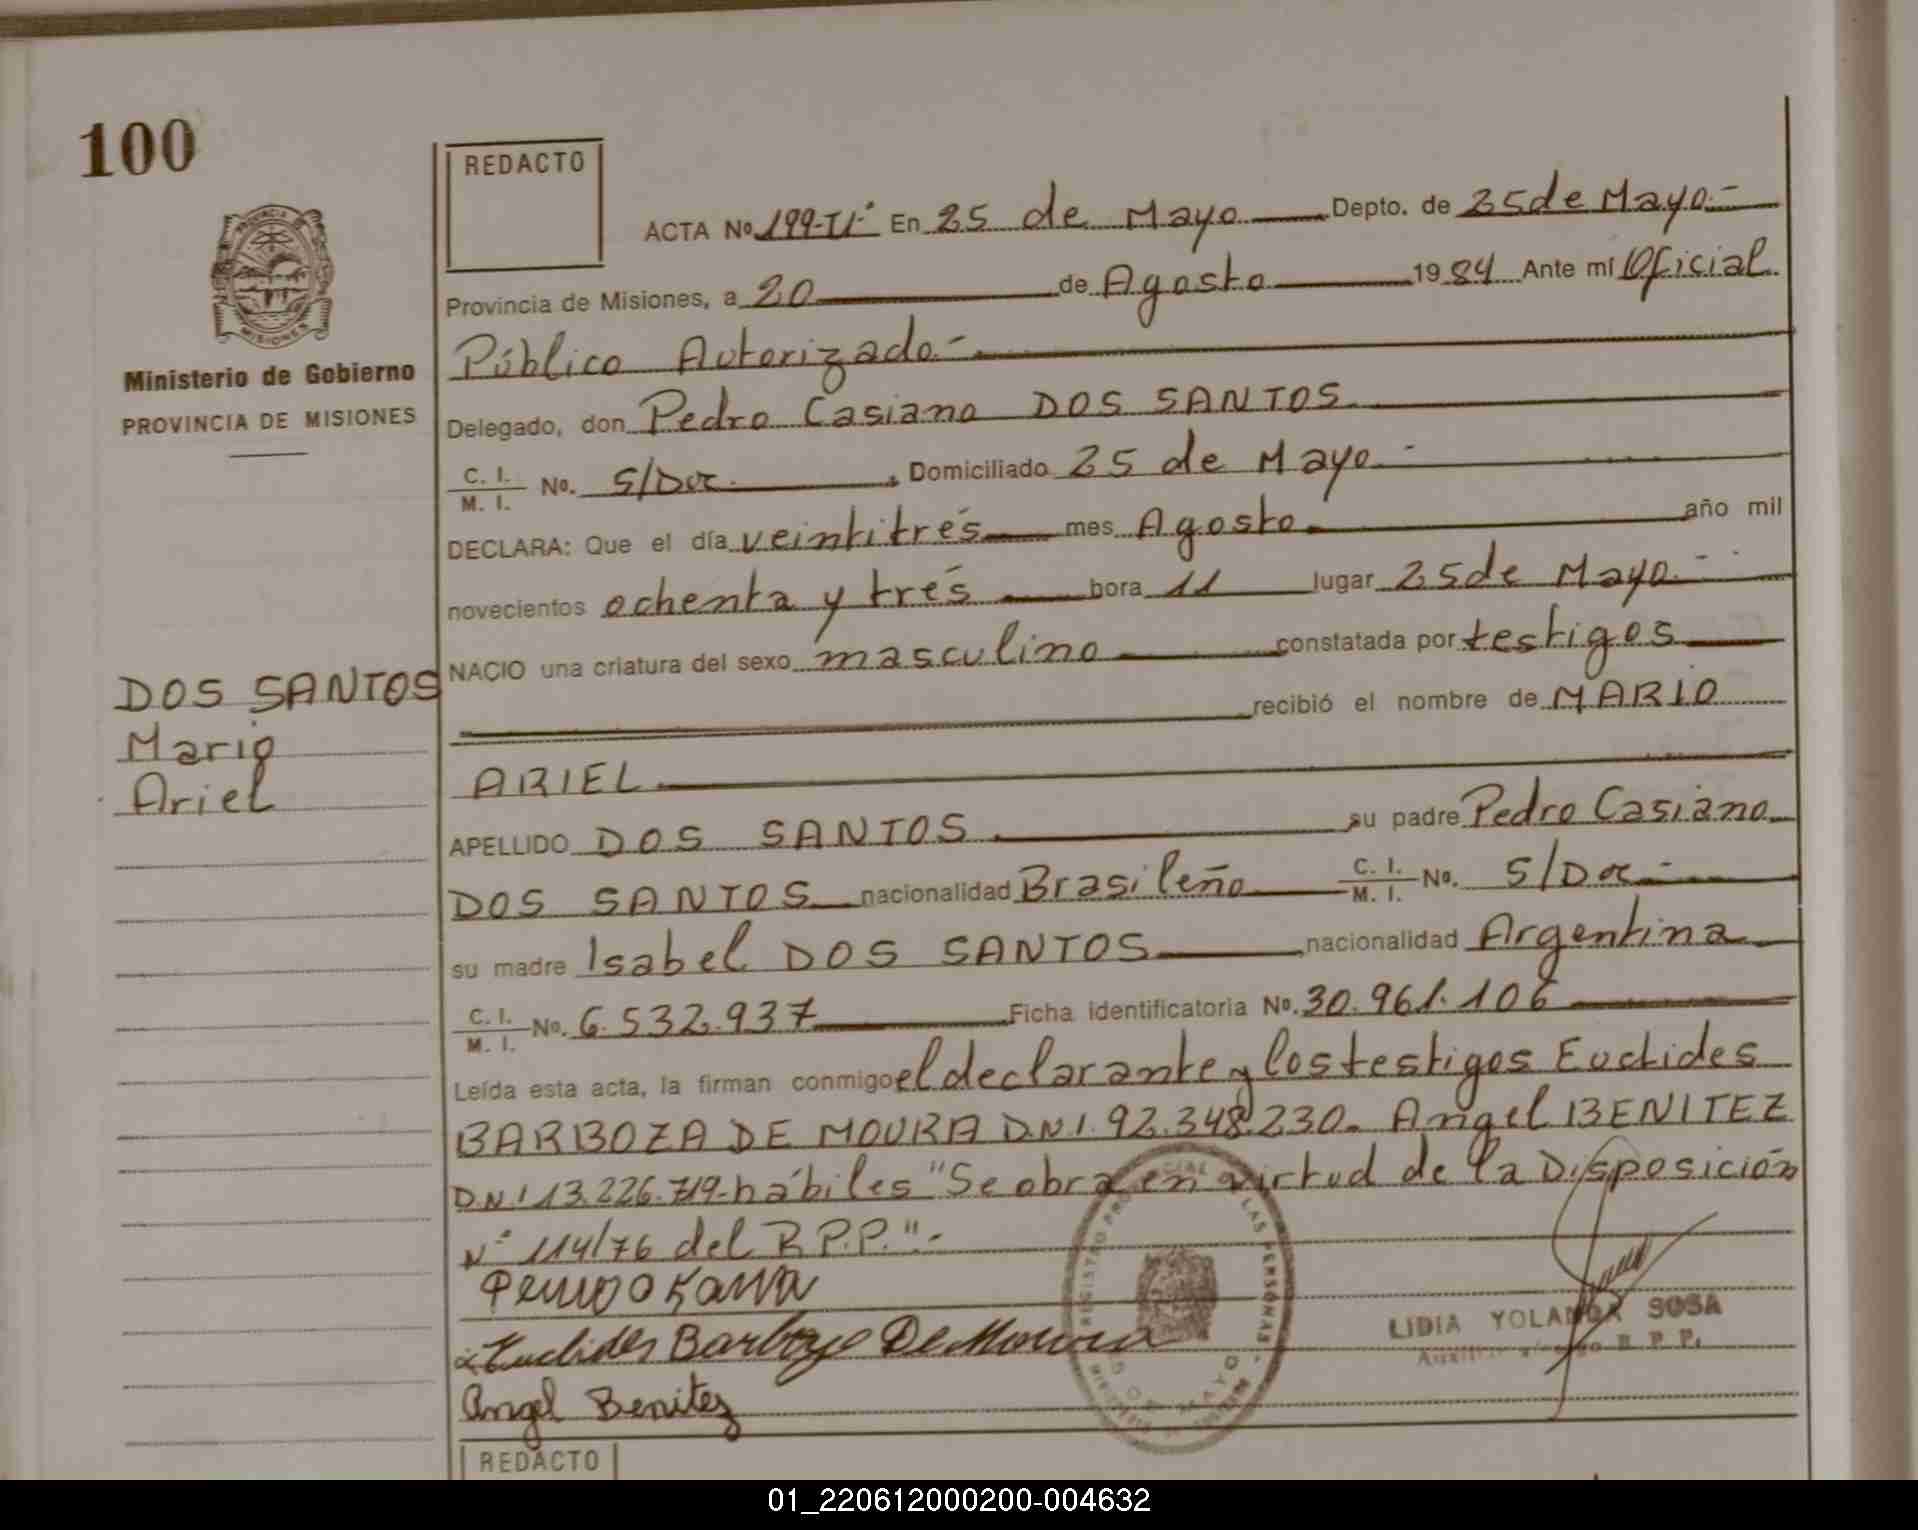 100
REDACTO
ACTA No 199-II- En 25 de Mayo Depto. de 25 de Mayo.-
Provincia de Misiones, a 20 de Agosto 1984 Ante mí Oficial
Público Autorizado.-
Ministerio de Gobierno
PROVINCIA DE MISIONES
MISIONES
Delegado, don Pedro Casiano DOS SANTOS
C. I.
M. I. No. S/Doc. , Domiciliado 25 de Mayo.-
DECLARA: Que el día veintitrés mes Agosto año mil
novecientos ochenta y trés hora 11 lugar 25 de Mayo.-
NACIO una criatura del sexo masculino constatada por testigos
recibió el nombre de MARIO
DOS SANTOS
Mario
Ariel
ARIEL
APELLIDO DOS SANTOS su padre Pedro Casiano
DOS SANTOS nacionalidad Brasileño C. I.
M. I. No. S/Doc.-
su madre Isabel DOS SANTOS nacionalidad Argentina
C. I.
M. I. No. 6.532.937 Ficha identificatoria No. 30.961.106
Leída esta acta, la firman conmigo el declarante y los testigos Euclides
BARBOZA DE MOURA D.N.I. 92.348.230. Angel BENITEZ
D.N.I 13.226.719-hábiles "Se obra en virtud de la Disposición
N° 114/76 del R.P.P.".-
Euclides Barboza De Moura
Angel Benitez
REGISTRO PROVINCIAL LAS PERSONAS
LIDIA YOLANDA SOSA
R. P. P.
REDACTO
01_220612000200-004632